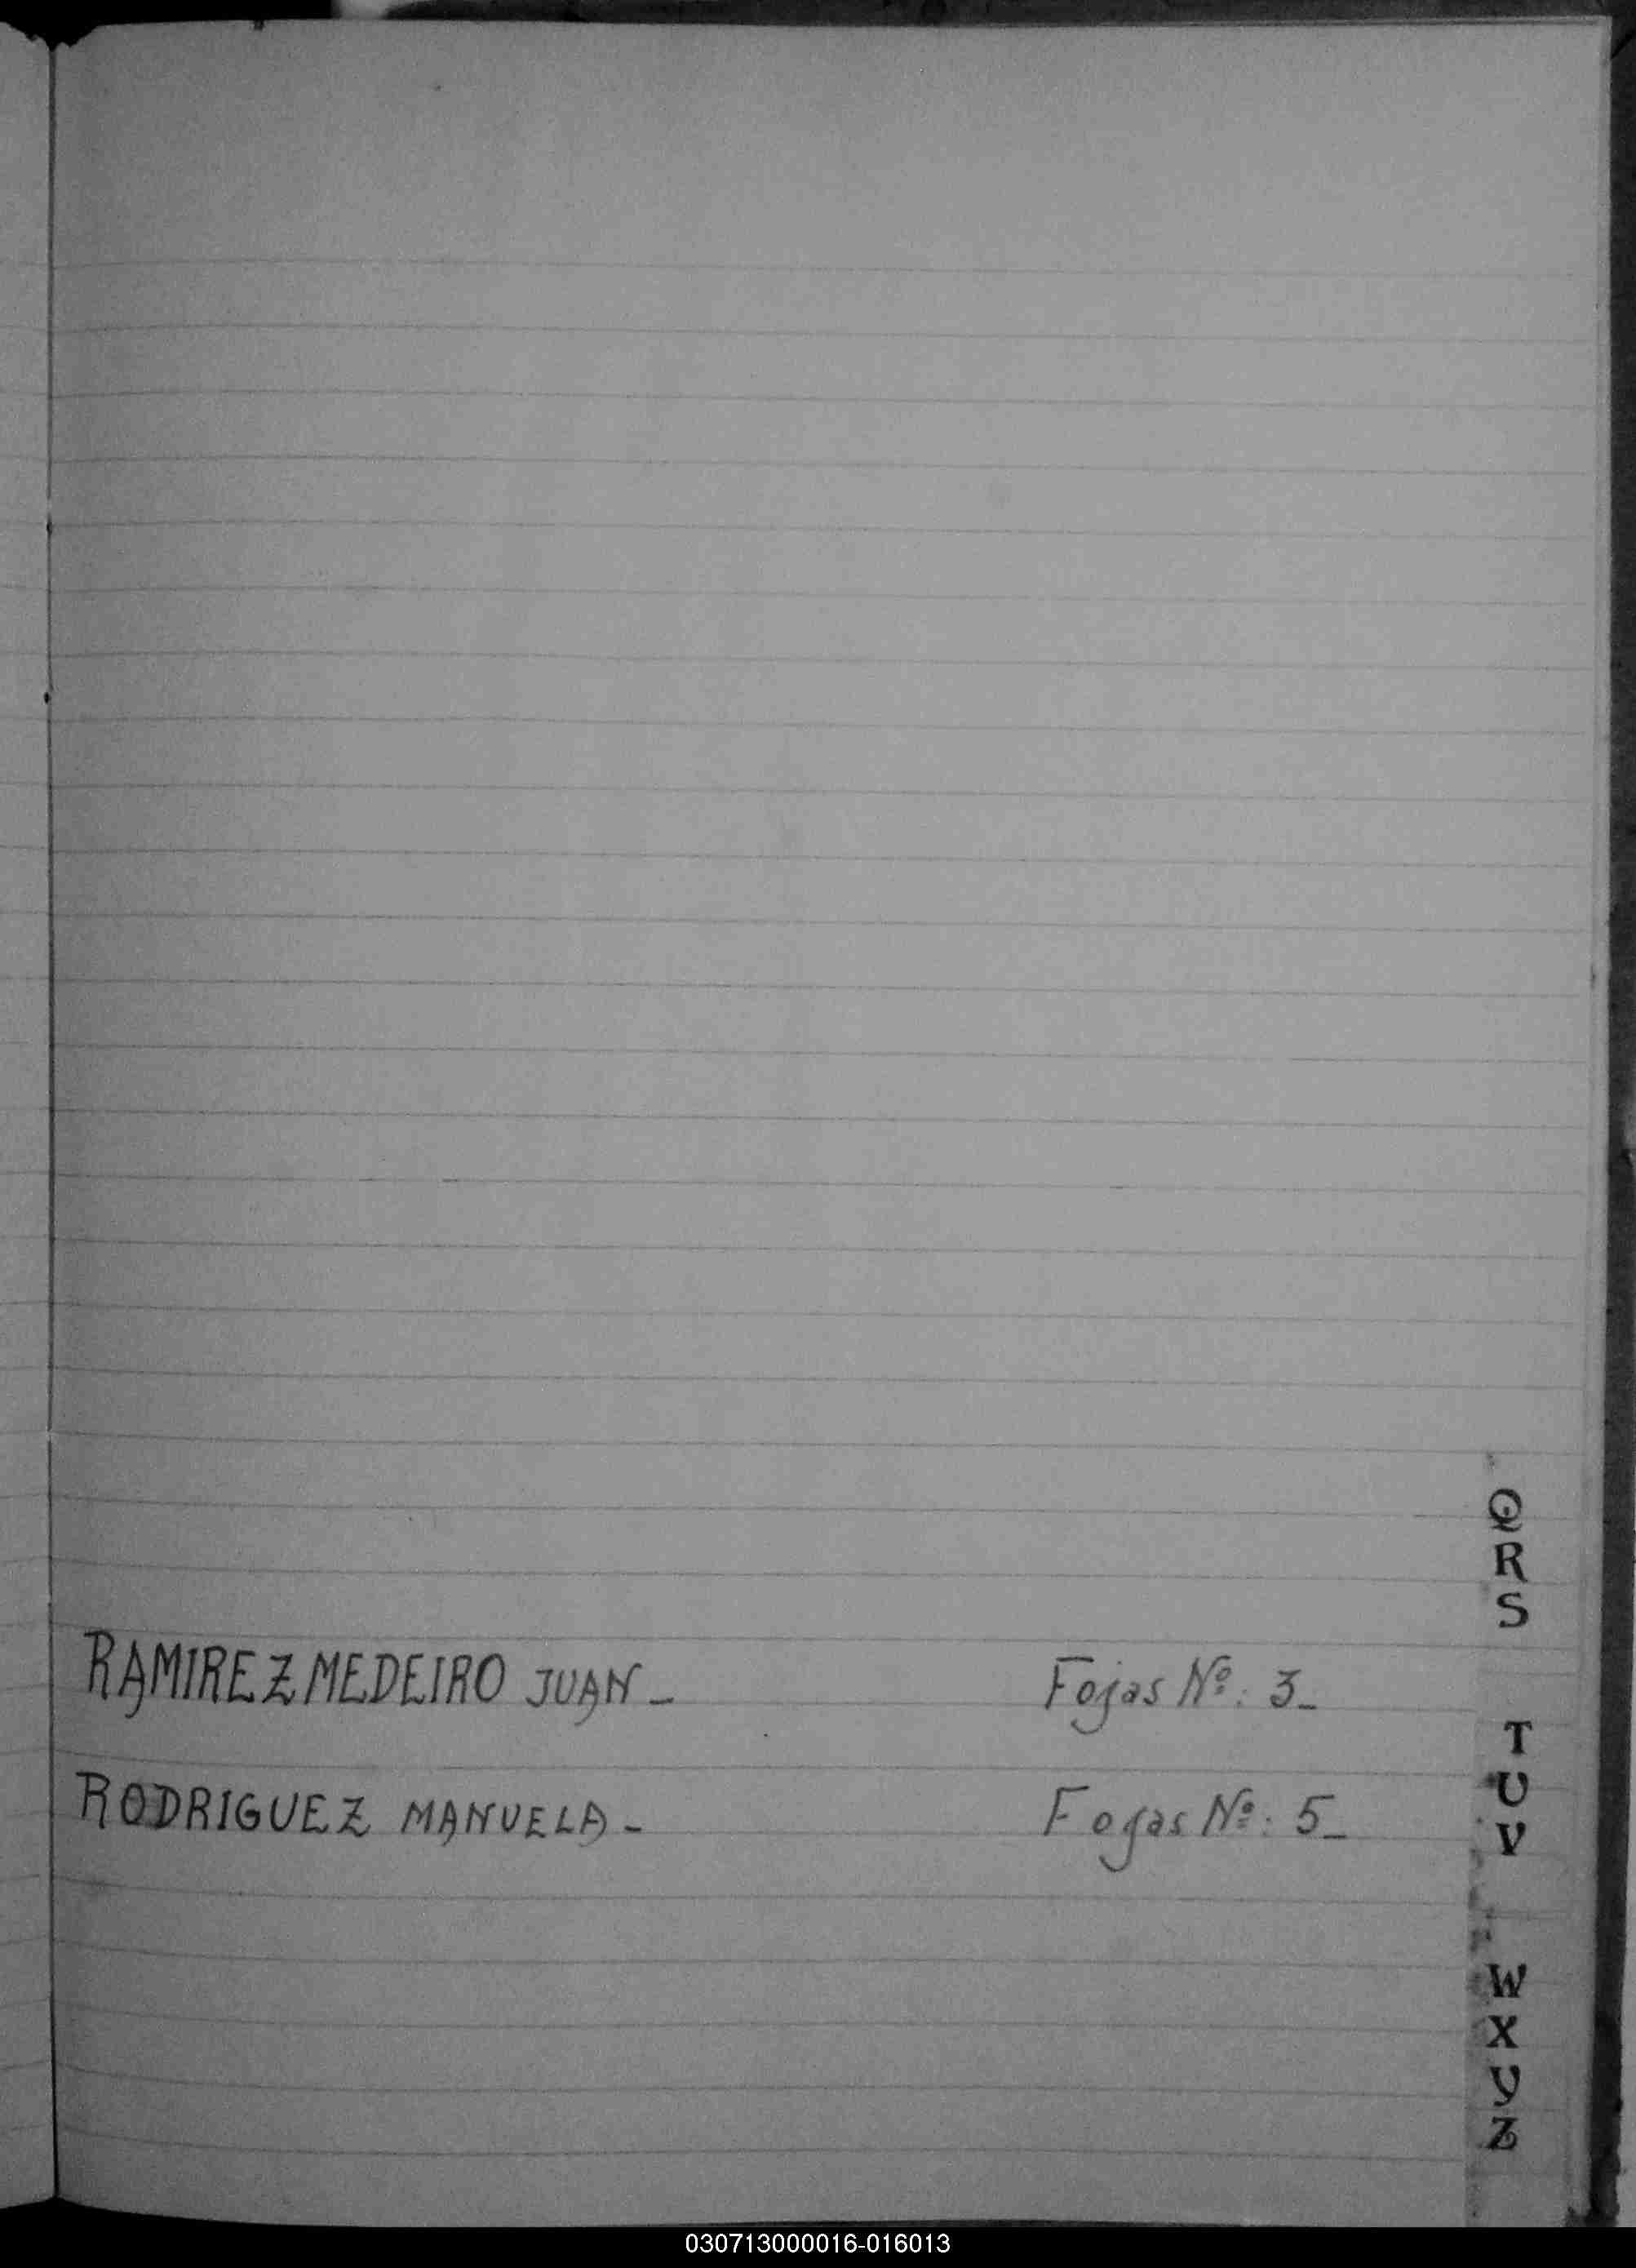 Q
R
S
RAMIREZ MEDEIRO JUAN - Fojas Nº: 3_
T
U
RODRIGUEZ MANUELA - Fojas Nº: 5_
V
W
X
Y
Z
030713000016-016013